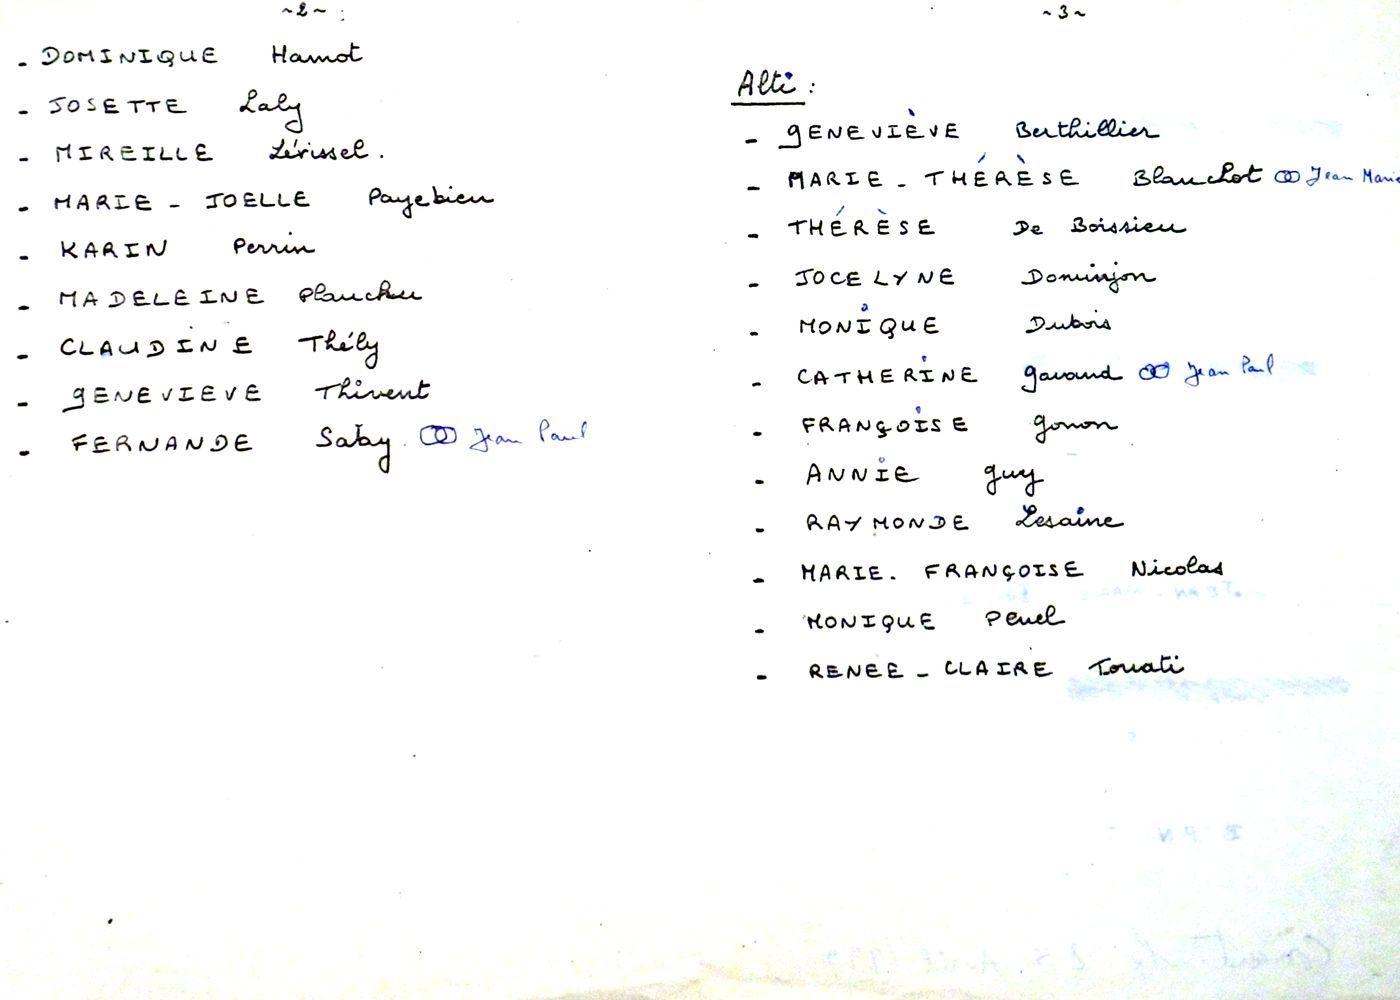 ~2~
- DOMINIQUE Hamot
- JOSETTE Laly
- MIREILLE Lérissel.
- MARIE - JOELLE Payebien
- KARIN Perrin
- MADELEINE Planchu
- CLAUDINE Thély
- GENEVIEVE Thivent
- FERNANDE Sabay Jean Paul
~3~
Alti :
- GENEVIÈVE Berthillier
- MARIE - THÉRÈSE Blanchot Jean Marie
- THÉRÈSE De Boissieu
- JOCELYNE Dominjon
- MONIQUE Dubois
- CATHERINE Gavand Jean Paul
- FRANÇOISE Gonon
- ANNIE Guy
- RAYMONDE Lesaine
- MARIE. FRANÇOISE Nicolas
- MONIQUE Penel
- RENÉE - CLAIRE Touati